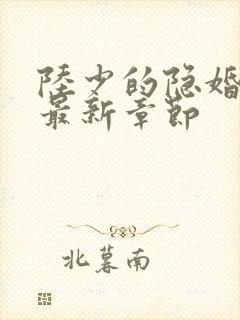 陸少的隐婚
最新章節
北暮南